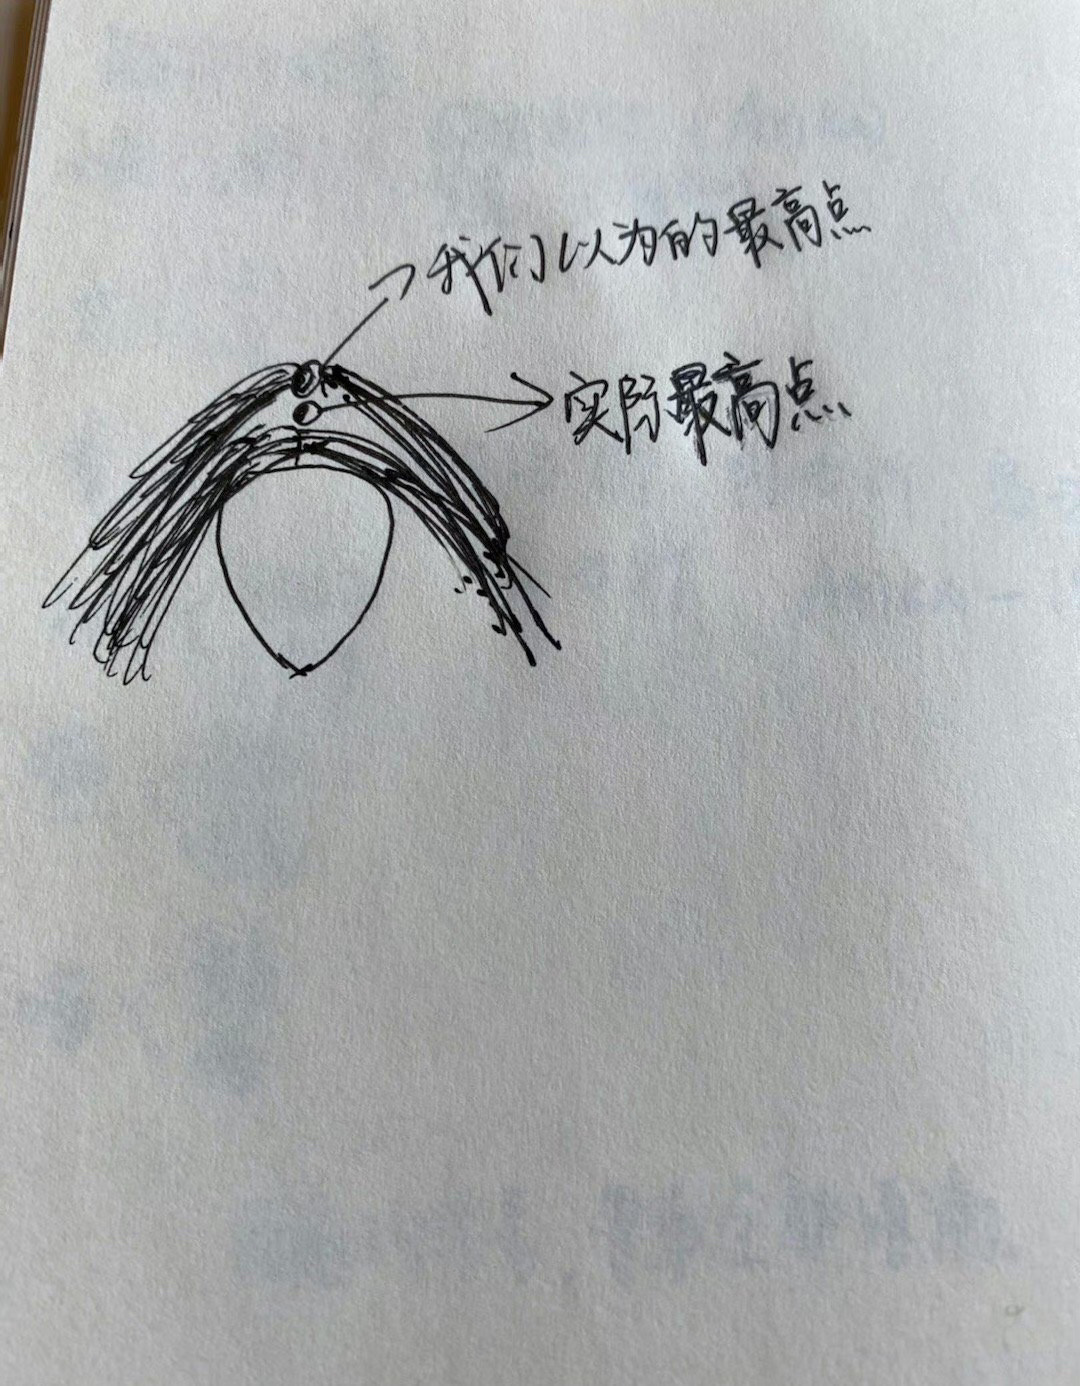 我们以为的最高点
实际最高点